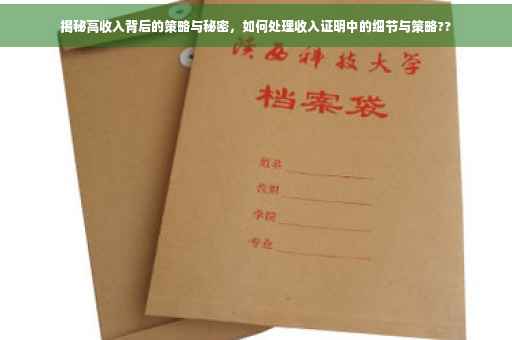 揭秘高收入背后的策略与秘密，如何处理收入证明中的细节与策略??
陕西科技大学
档案袋
姓名
性别
学院
专业